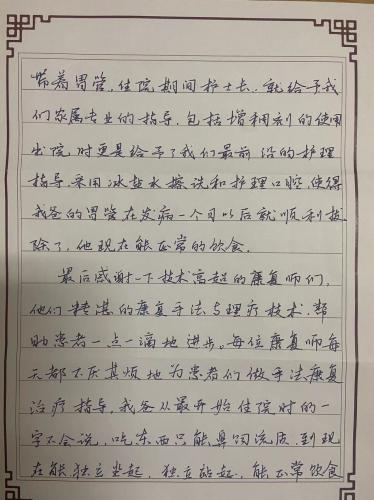 带着胃管，住院期间护士长，就给予我
们家属专业的指导，包括增稠剂的使用
出院时更是给予了我们最前沿的护理
指导，采用冰盐水擦洗和护理口腔，使得
我爸的胃管在发病一个月以后就顺利拔
除了，他现在能正常的饮食，
最后感谢一下技术高超的康复师们，
他们精湛的康复手法与理疗技术，帮
助患者一点一滴地进步。每位康复师每
天都不厌其烦地为患者们做手法康复
治疗指导，我爸从最开始住院时的一
字不会说，吃东西只能鼻饲流质，到现
在能独立坐起，独立站起，能正常饮食